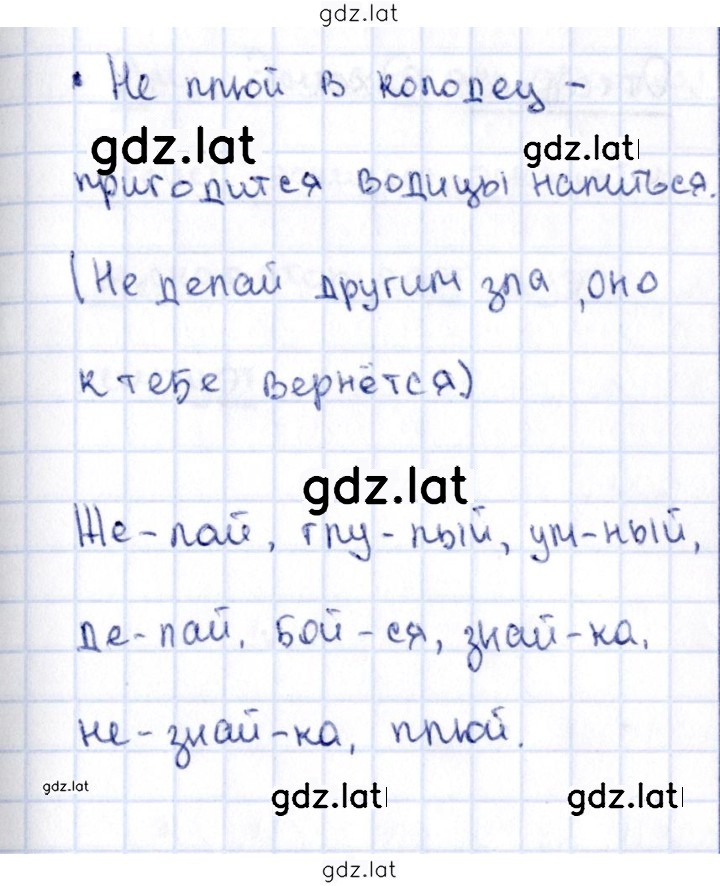 gdz.lat
• Не плюй в колодец –
gdz.lat gdz.lat
пригодится водицы напиться.
(Не делай другим зла, оно
к тебе вернётся)
gdz.lat
Же-лай, глу-пый, ум-ный,
де-лай, бой-ся, знай-ка,
не-знай-ка, плюй.
gdz.lat gdz.lat gdz.lat
gdz.lat